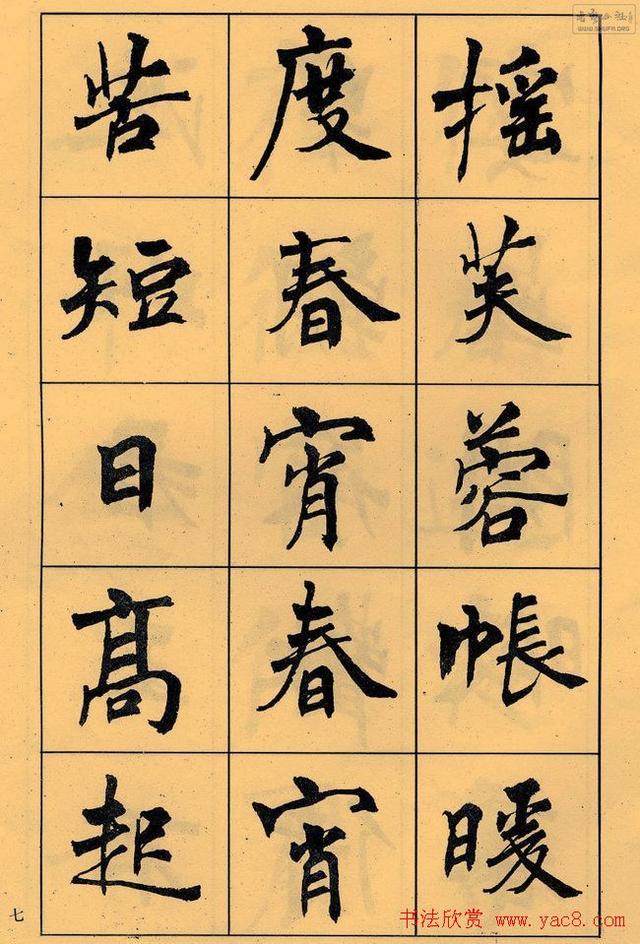 摇芙蓉帳暖
度春宵春宵
苦短日髙起
七
书法欣赏 www.yac8.com
WWW.SHUFA.ORG